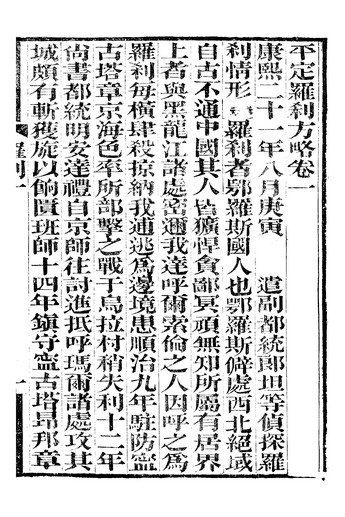 平定羅刹方略卷一
康熙二十一年八月庚寅　遣副都統郎坦等偵探羅
刹情形　羅刹者鄂羅斯國人也鄂羅斯僻處西北絕域
自古不通中國其人皆獷悍貪鄙冥頑無知所屬有居界
上者與黑龍江諸處密邇我達呼爾索倫之人因呼之爲
羅刹每橫肆殺掠納我逋逃爲邊境患順治九年駐防寧
古塔章京海色率所部擊之戰于烏拉村稍失利十二年
尙書都統明安達禮自京師往討進抵呼瑪爾諸處攻其
城頗有斬獲旋以餉匱班師十四年鎭守寧古塔昂邦章
羅刹一
一